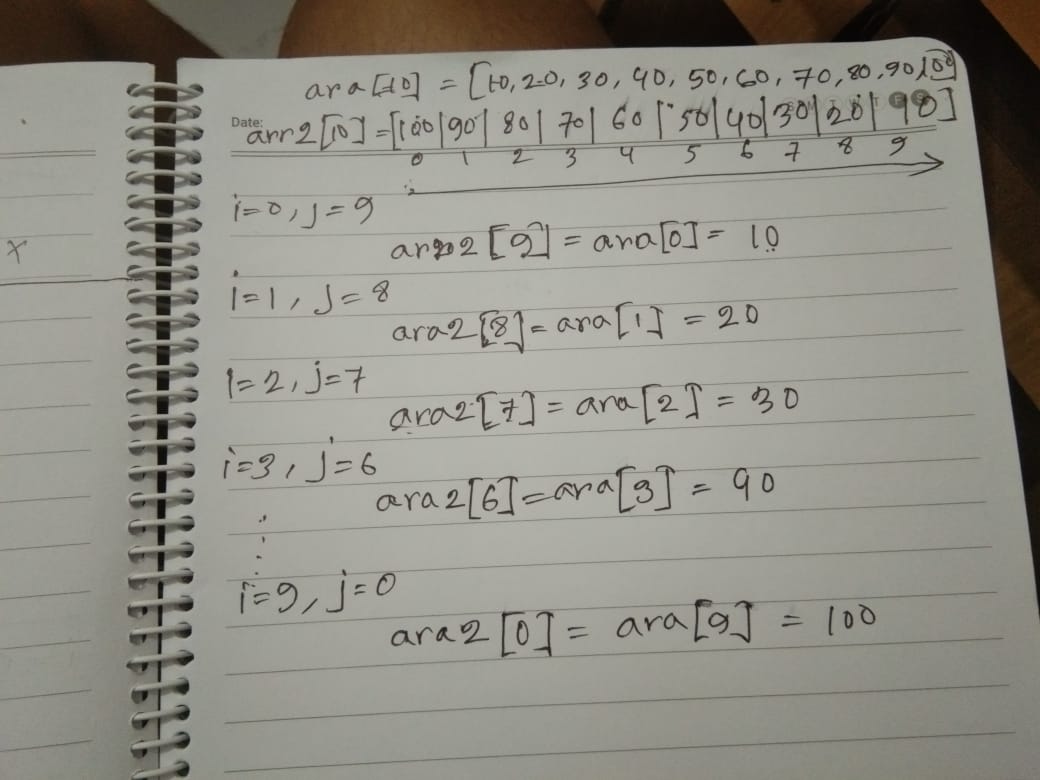 ara[10] = [10, 20, 30, 40, 50, 60, 70, 80, 90, 100]
Date:
arr2[10] = [100|90|80|70|60|50|40|30|20|90]
0 1 2 3 4 5 6 7 8 9
i=0, j=9
ara2[9] = ara[0] = 10
i=1, j=8
ara2[8] = ara[1] = 20
i=2, j=7
ara2[7] = ara[2] = 30
i=3, j=6
ara2[6] = ara[3] = 90
i=9, j=0
ara2[0] = ara[9] = 100
x